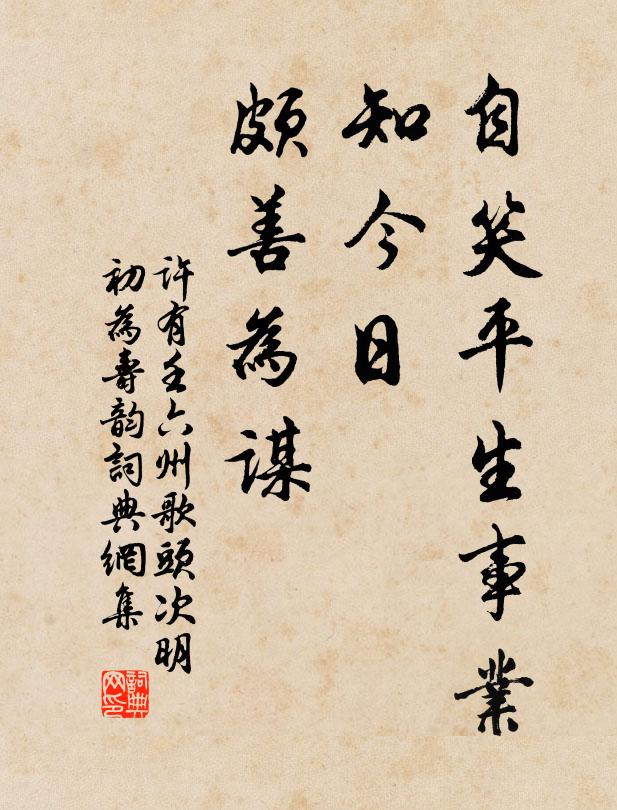 自笑平生事業
知今日
頗善為謀
許有壬六州歌頭次明
初為壽韵詞典網集
詞典网印